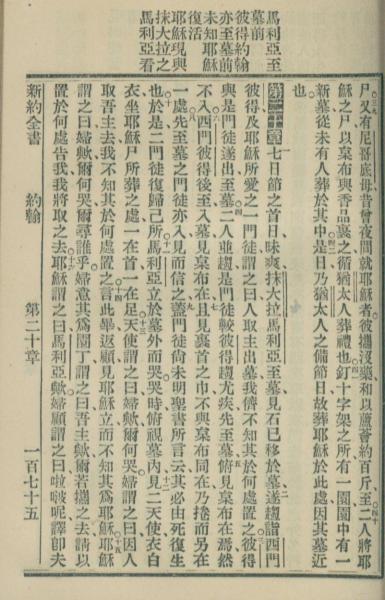 馬利亞至
墓前
彼得約翰
亦至墓前
未知耶穌
復活
耶穌現與
抹大拉之
馬利亞看
尸又有尼哥底母昔曾夜間就耶穌者彼攜沒藥和以蘆薈約百斤至二人將耶
穌之尸以枲布與香品裹之循猶太人葬禮也釘十字架之所有一園園中有一
新墓從未有人葬於其中是日乃猶太人之備節日故葬耶穌於此處因其墓近
也
第二十章 七日節之首日昧爽抹大拉馬利亞至墓見石已移於墓遂趨詣西門
彼得及耶穌所愛之一門徒謂之曰人取主出墓我儕不知其於何處置之彼得
與是門徒遂出至墓二人並趨是門徒較彼得趨尤疾先至墓俯見枲布在焉然
不入西門彼得後至入墓見枲布在且見裹首之巾不與枲布同在乃捲而另在
一處先至墓之門徒亦入見而信之蓋門徒尚未明聖書所言云其必由死復生
也於是二門徒復歸己所馬利亞立於墓外而哭哭時俯視墓內見二天使衣白
衣坐耶穌尸所葬之處一在首一在足天使謂之曰婦歟爾何哭婦謂之曰因人
取吾主去我不知其於何處置之言此畢返顧見耶穌立而不知其為耶穌耶穌
謂之曰婦歟爾何哭爾尋誰乎婦意其為園丁謂之曰吾主歟爾若攜之去請以
置於何處告我我將取之去耶穌謂之曰馬利亞歟婦顧謂之曰啦啵呢譯卽夫
新約全書 約翰 第二十章 一百七十五